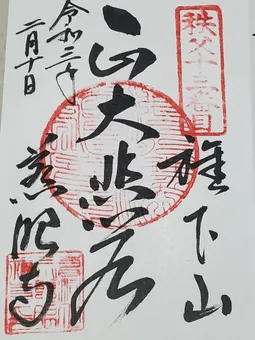 秩父十三番目
旗下山
大悲
慈眼寺
令和二年
二月十日